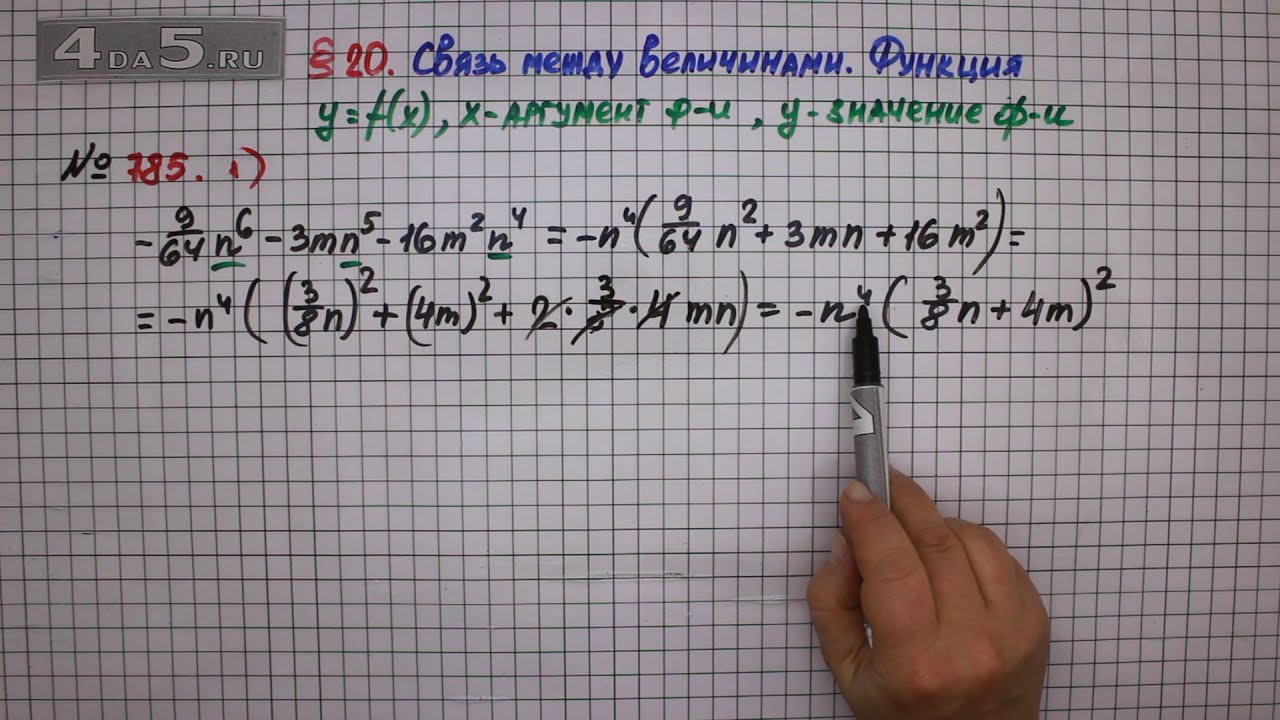 4DA5.RU
§ 20. Связь между величинами. Функция
y = f(x), x - аргумент ф-и, y - значение ф-и
№ 785. 1)
-9/64 n⁶ - 3mn⁵ - 16m²n⁴ = -n⁴(9/64 n² + 3mn + 16m²) =
= -n⁴((3/8 n)² + (4m)² + 2 · 3/8 · 4 mn) = -n⁴(3/8 n + 4m)²